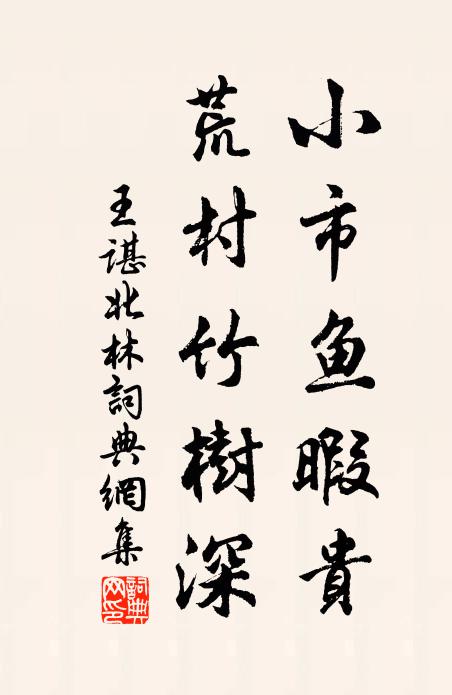 小市鱼暇貴
荒村竹樹深
王諶北林詞典網集
詞典網印